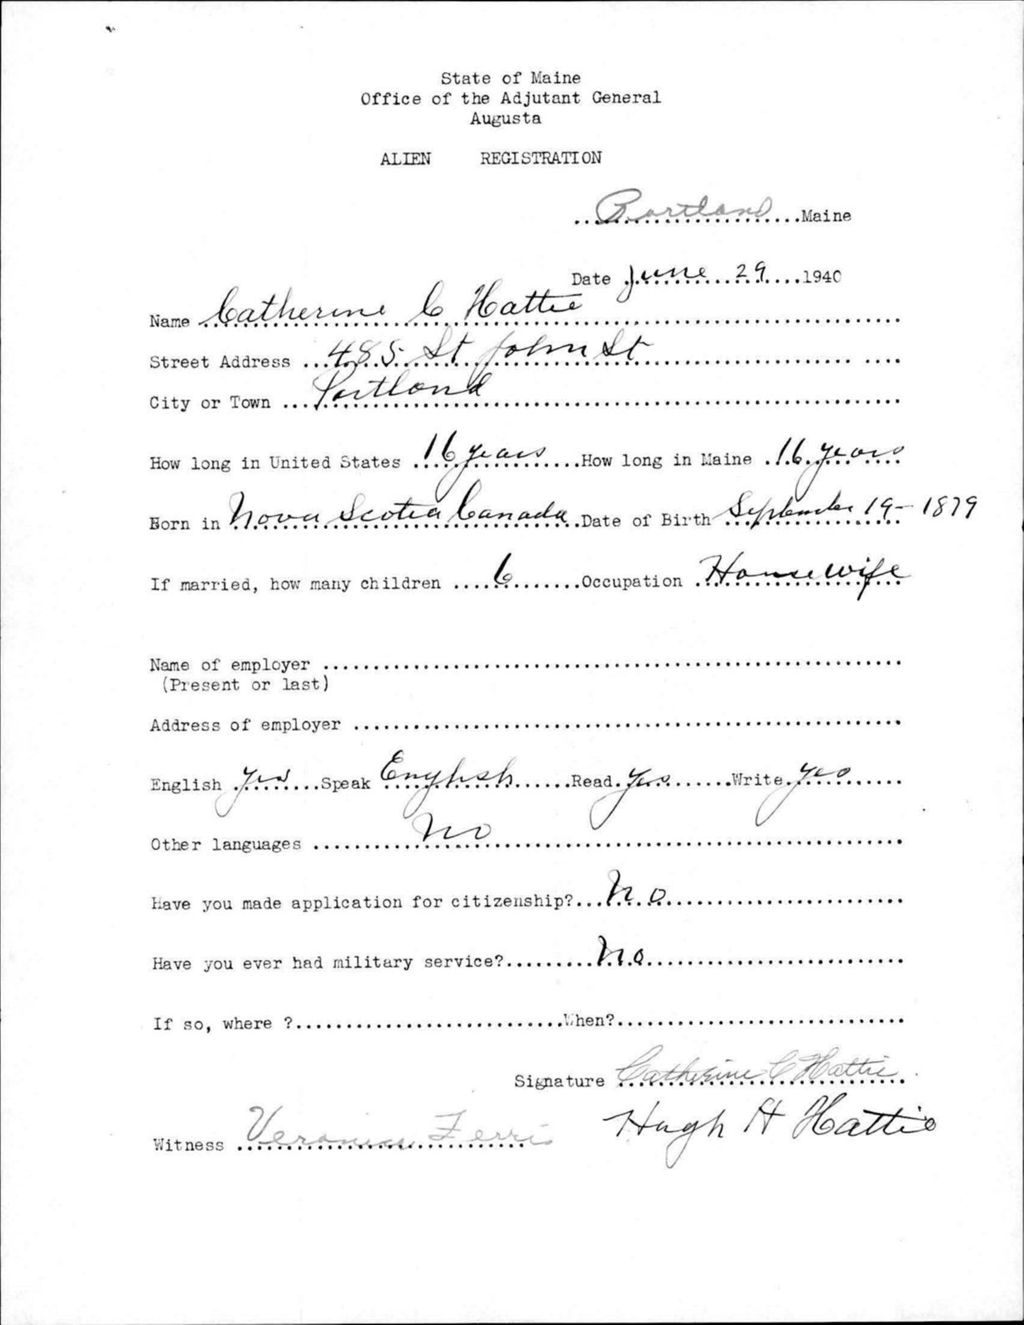 State of Maine
Office of the Adjutant General
Augusta
ALIEN REGISTRATION
..Portland...Maine
Date June 29....1940
Name ..Catherine C Hattie
Street Address ...485 St John St
City or Town ...Portland
How long in United States ..16 years....How long in Maine .16 years
Born in Nova Scotia Canada.Date of Birth September 19-1879
If married, how many children ....6.......Occupation .Housewife
Name of employer
(Present or last)
Address of employer
English yes...Speak English.....Read.yes.....Write.yes
Other languages ......No
Have you made application for citizenship?...No
Have you ever had military service?.........No
If so, where ?...........................When?
Signature Catherine C Hattie
Hugh H Hattie
Witness Veronica Ferris